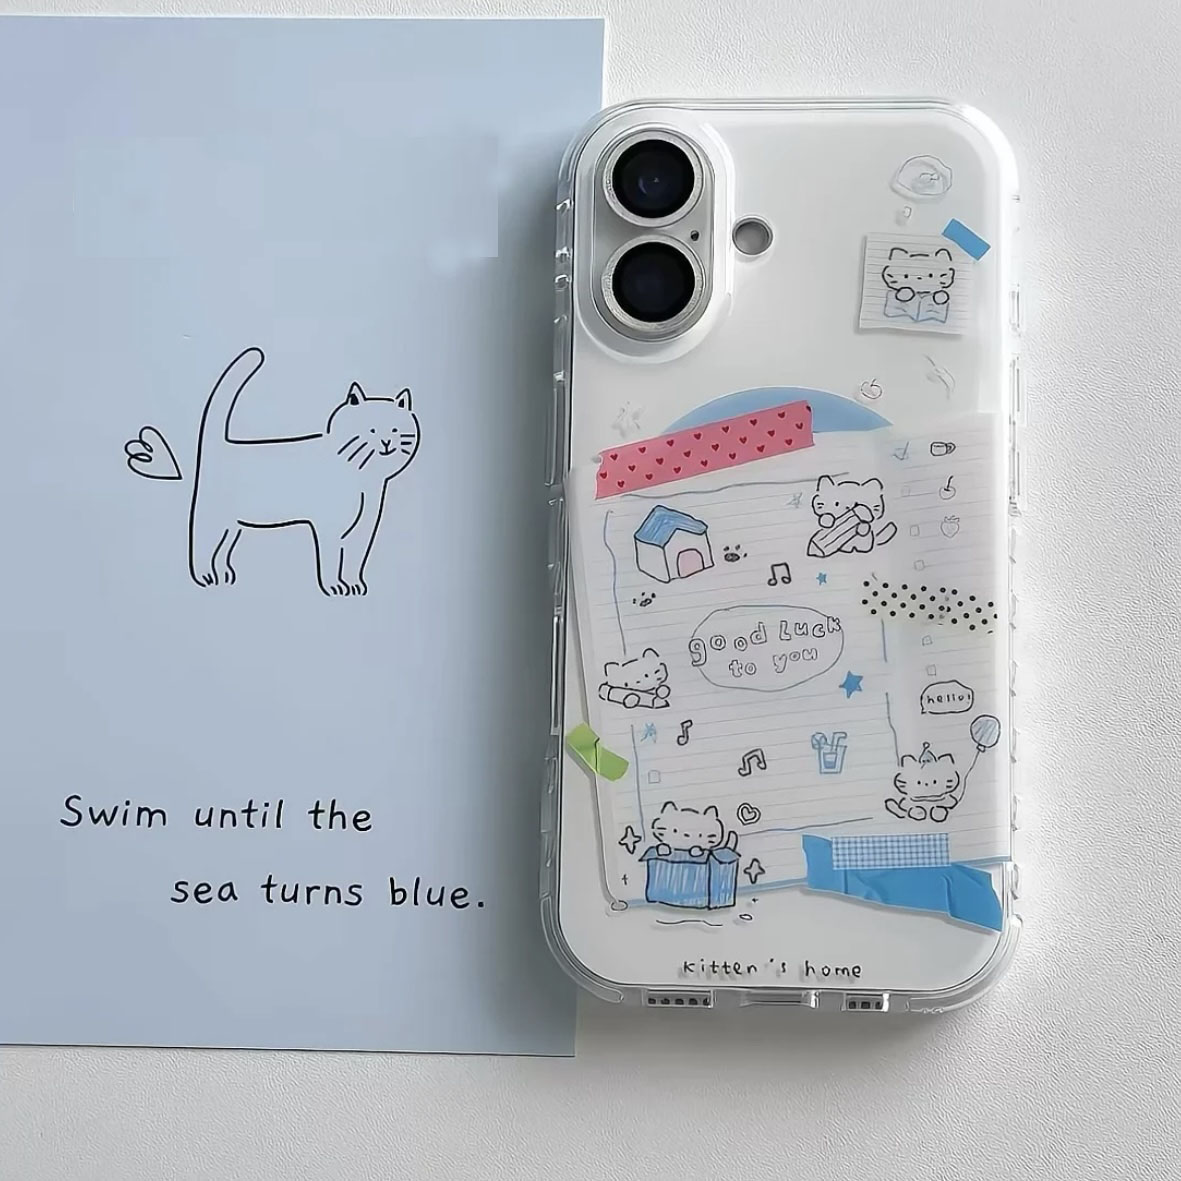 Swim until the
sea turns blue.
good luck
to you
hello!
kitten's home